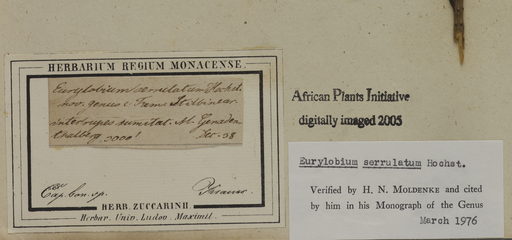 HERBARIUM REGIUM MONACENSE.
Eurylobium serrulatum Hochst.
nov. genus e fam. Stilbinear.
inter rupes summitat. M. Genaden
thalberg 3000! Dec. 38
Cap. bon. sp. Krauss.
HERB. ZUCCARINII
Herbar. Univ. Ludov. Maximil.
African Plants Initiative
digitally imaged 2005
Eurylobium serrulatum Hochst.
Verified by H. N. Moldenke and cited
by him in his Monograph of the Genus
March 1976